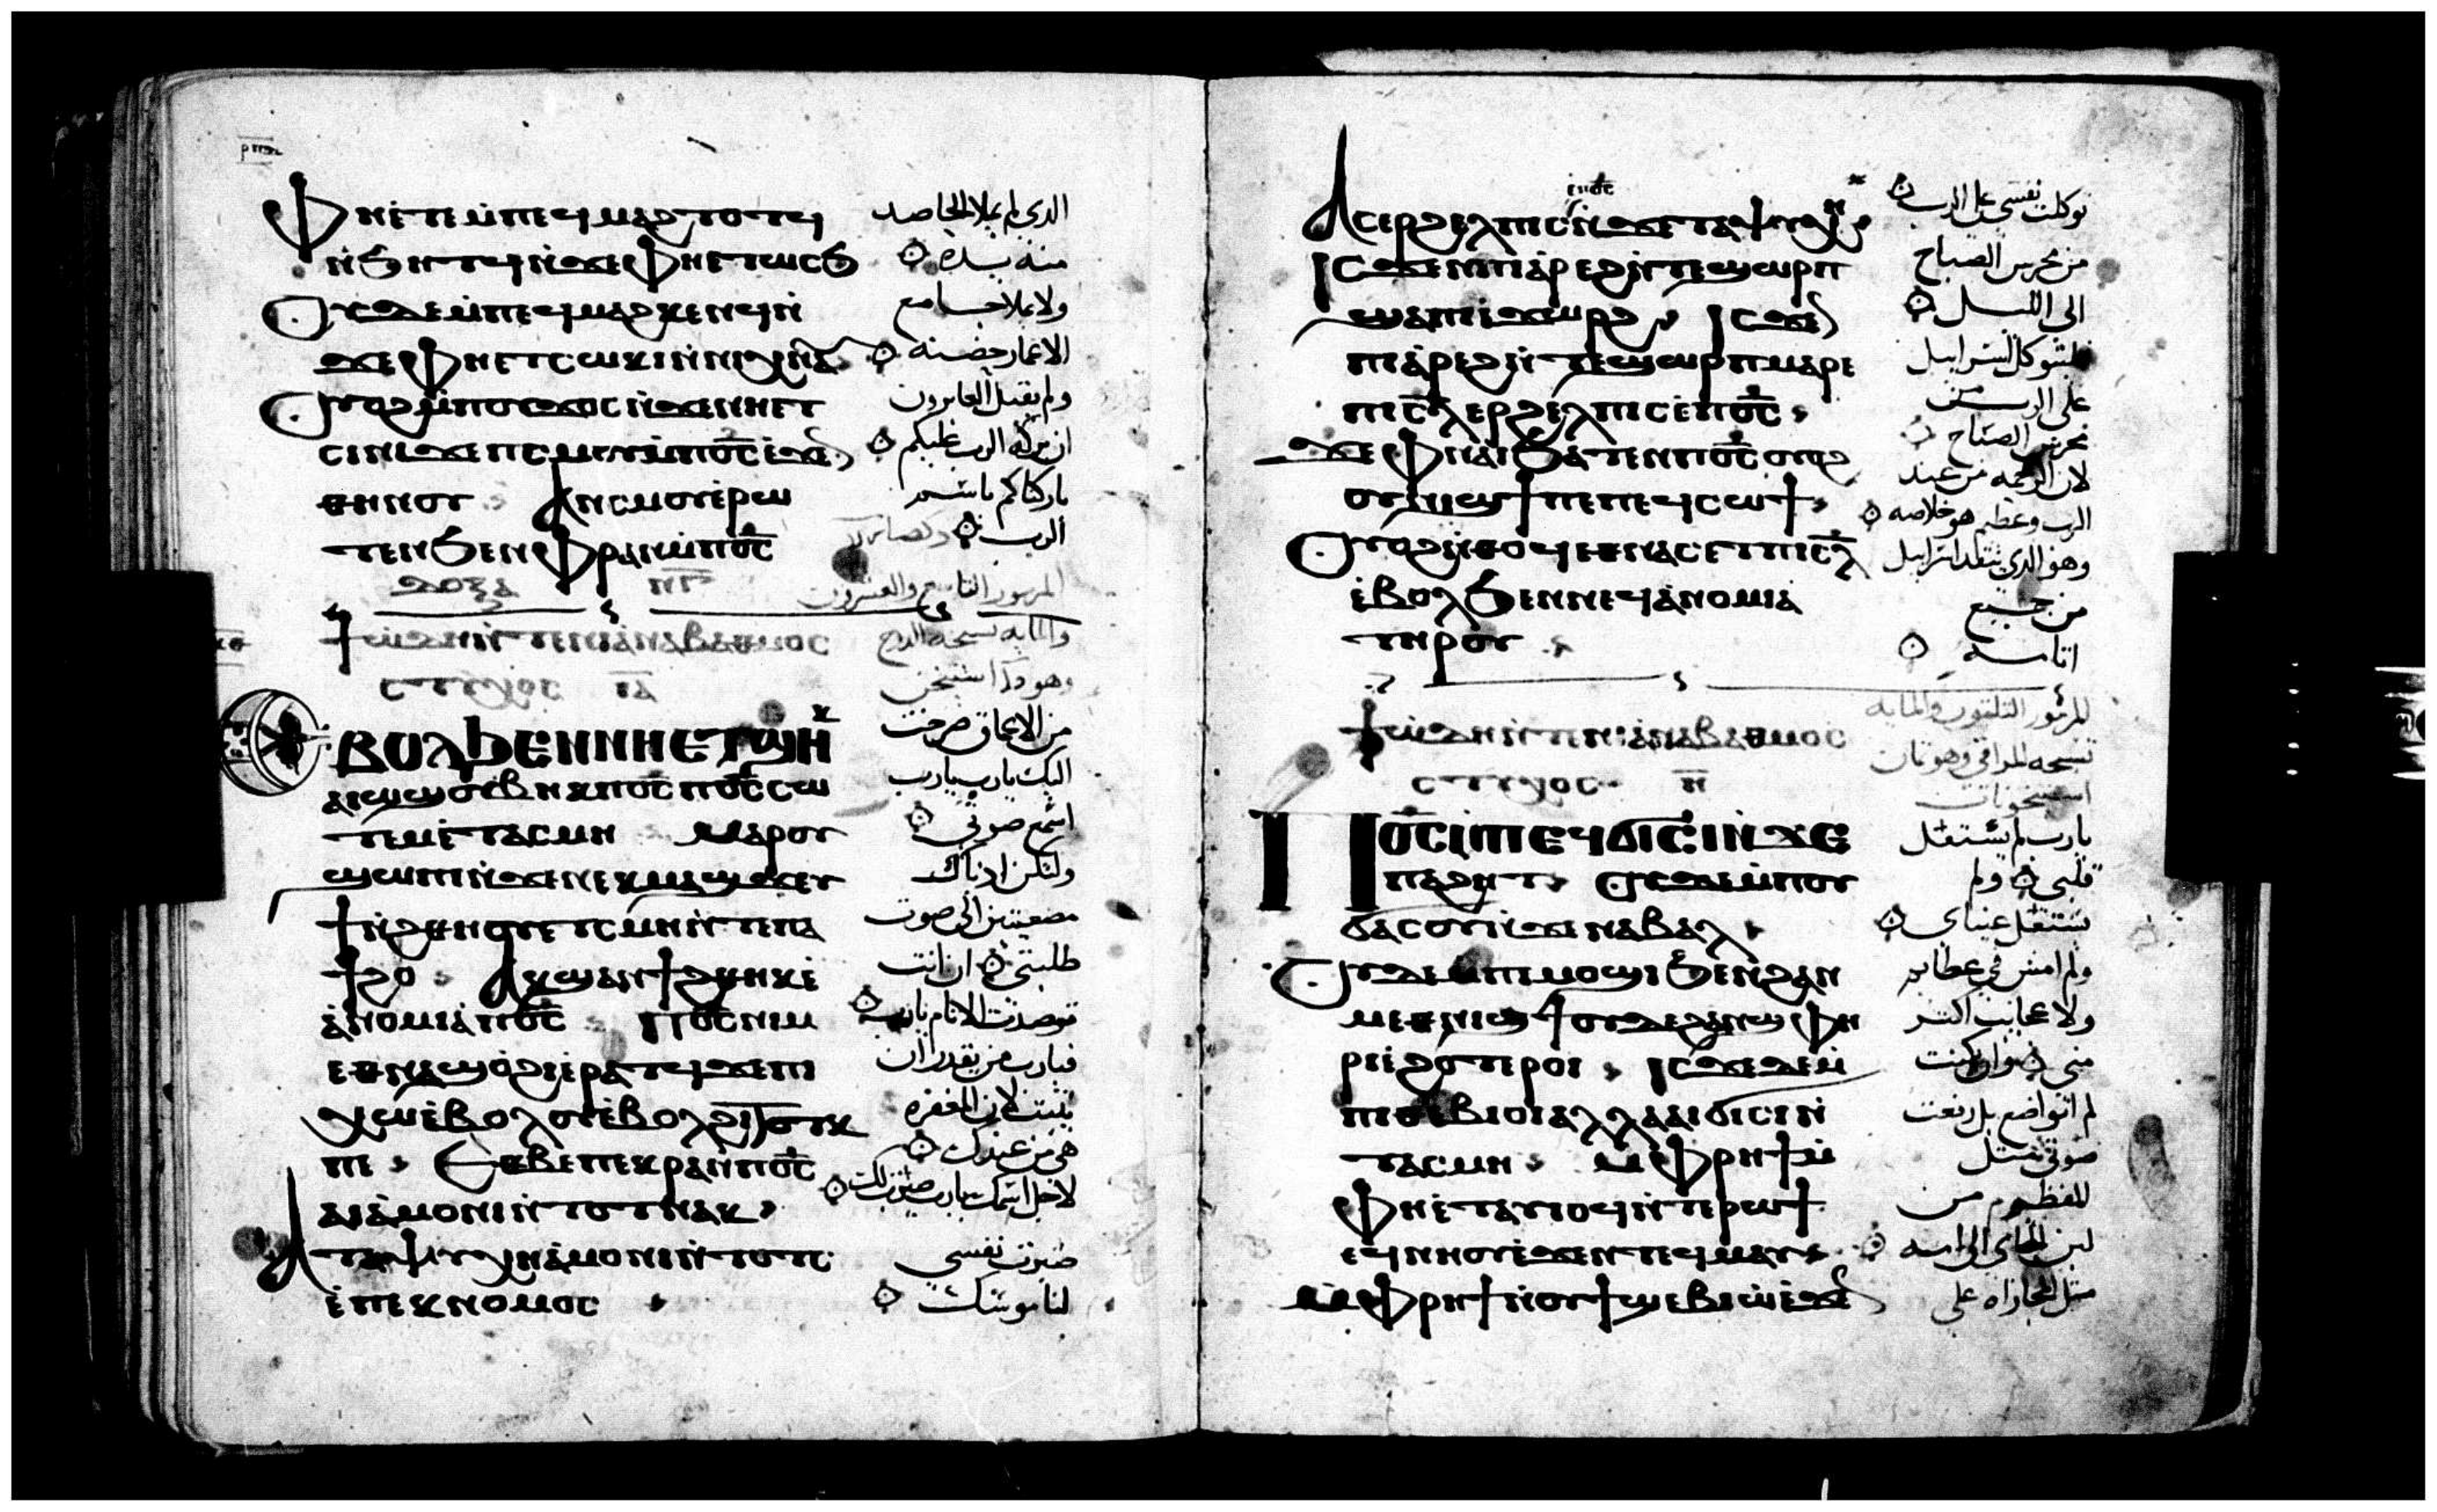 ⲫⲏⲉⲧⲉⲙⲡⲉϥⲙⲁϩⲧⲟⲧϥ
ⲛϧⲏⲧϥⲛϫⲉⲫⲏⲉⲧⲱⲥϧ
ⲟⲩⲇⲉⲙⲡⲉϥⲙⲁϩⲕⲉⲛϥⲛ
ϫⲉⲫⲏⲉⲧⲥⲱⲕⲓⲛⲛⲓϩⲛⲁ
ⲟⲩⲟϩⲙⲡⲟⲩϫⲟⲥⲛϫⲉⲛⲏⲉⲧ
ⲥⲓⲛⲓϫⲉⲡⲥⲙⲟⲩⲙⲡⲟ̅ⲥ̅ⲉϫⲉ
ⲑⲏⲛⲟⲩ ⲁⲛⲥⲙⲟⲩⲉⲣⲱ
ⲧⲉⲛϧⲉⲛⲫⲣⲁⲛⲙⲡⲟ̅ⲥ̅
ⲇⲟⲝⲁ ⲛ̅ⲅ̅
ϯⲱⲇⲏⲛⲧⲉⲛⲓⲁⲛⲁⲃⲁⲑⲙⲟⲥ
ⲥⲧⲩⲭⲟⲥ ⲓ̅ⲁ̅
ⲉⲃⲟⲗϧⲉⲛⲛⲏⲉⲧϣⲏⲕ
ⲁⲓⲱϣⲟⲩⲃⲏⲕⲡⲟ̅ⲥ̅ⲡⲟ̅ⲥ̅ⲥⲱ
ⲧⲉⲙⲉⲧⲁⲥⲙⲏ ⲙⲁⲣⲟⲩ
ϣⲱⲡⲓⲛϫⲉⲛⲉⲕⲙⲁϣϫⲉⲩ
ϯⲛϩⲑⲏⲟⲩⲉⲧⲥⲙⲏⲛⲧⲉⲡⲁ
ϯϩⲟ ⲁⲕϣⲁⲛϯϩⲑⲏⲕⲉ
ⲁⲛⲟⲙⲓⲁⲡⲟ̅ⲥ̅ ⲡⲟ̅ⲥ̅ⲛⲓⲙ
ⲉⲑⲛⲁϣⲟϩⲓⲉⲣⲁⲧϥϫⲉⲡⲓ
ⲭⲱⲉⲃⲟⲗⲟⲩⲉⲃⲟⲗϩⲓⲧⲟⲧⲕ
ⲡⲉ ⲉⲑⲃⲉⲡⲉⲕⲣⲁⲛⲡⲟ̅ⲥ̅
ⲁⲓⲁⲙⲟⲛⲓⲛⲧⲟⲧⲛⲁⲕ
ⲁⲧⲁⲯⲩⲭⲏⲁⲙⲟⲛⲓⲛⲧⲟⲧⲥ
ⲉⲡⲉⲕⲛⲟⲙⲟⲥ
الدي لم يملا الحاصد
منه يده
ولا يملا حسا مع
الاغمار حضنه
ولم يقبل العابرون
ان بركه الرب عليكم
باركناكم باسم
الرب
المزمور التاسع والعشرون
والمايه تسبحة الدرج
من الاعماق صرخت
اليك يارب يارب
اسمع صوتي
ولتكن ادناك
مصغيتين الى صوت
طلبتي ان انت
ترصدت الاتام يارب
فيارب من يقدر ان
يثبت لان المغفره
هي من عندك
لاجل اسمك يارب صبرت لك
صبرت نفسي
لناموسك
ⲉⲡⲟ̅ⲥ̅
ⲁⲥⲉⲣϩⲉⲗⲡⲓⲥⲛϫⲉⲧⲁⲯⲩⲭⲏ
ⲓⲥϫⲉⲛⲡⲓⲁⲣⲉϩⲛⲧⲉϣⲱⲣⲡ
ϣⲁⲡⲓⲉϫⲱⲣϩ ⲓⲥϫⲉ
ⲡⲓⲁⲣⲉϩⲛⲧⲉϣⲱⲣⲡⲙⲁⲣⲉ
ⲡⲓⲥ̅ⲗ̅ⲉⲣϩⲉⲗⲡⲓⲥⲉⲡⲟ̅ⲥ̅
ϫⲉⲫⲛⲁⲓϧⲁⲧⲉⲛⲡⲟ̅ⲥ̅ⲟⲩⲟϩ
ⲟⲩⲛⲓϣϯⲡⲉⲡⲉϥⲥⲱϯ
ⲟⲩⲟϩⲛⲑⲟϥⲉⲑⲛⲁⲥⲉⲧⲡⲓⲥ̅ⲗ̅
ⲉⲃⲟⲗϧⲉⲛⲛⲉϥⲁⲛⲟⲙⲓⲁ
ⲧⲏⲣⲟⲩ
ϯⲱⲇⲏⲛⲧⲉⲛⲓⲁⲛⲁⲃⲁⲑⲙⲟⲥ
ⲥⲧⲩⲭⲟⲥ ⲏ̅
ⲡⲟ̅ⲥ̅ⲙⲡⲉϥϭⲓⲥⲓⲛϫⲉ
ⲡⲁϩⲏⲧ ⲟⲩⲇⲉⲙⲡⲟⲩ
ϭⲁⲥⲟⲩⲛϫⲉⲛⲁⲃⲁⲗ
ⲟⲩⲇⲉⲙⲡⲓⲙⲟϣⲓϧⲉⲛϩⲁⲛ
ⲙⲉⲑⲛⲓϣϯⲟⲩⲇⲉϩⲁⲛϣⲫⲏ
ⲣⲓⲉϩⲟⲧⲉⲣⲟⲓ ⲓⲥϫⲉⲇⲉⲙ
ⲡⲓⲑⲉⲃⲓⲟⲓⲁⲗⲗⲁⲁⲓϭⲓⲥⲓⲛ
ⲧⲁⲥⲙⲏ ⲙⲫⲣⲏϯⲙ
ⲫⲏⲉⲧⲁⲩⲟϥⲛⲧⲉⲣⲱϯ
ⲉϥⲛⲏⲟⲩⲉϫⲉⲛⲧⲉϥⲙⲁⲩ
ⲙⲫⲣⲏϯⲛⲟⲩϯϣⲉⲃⲓⲱⲉϫⲉ
توكلت نفسي على الرب
من محرس الصباح
الى الليل
فليتوكل اسراييل
على الرب من
محرس الصباح
لان الرحمه من عند
الرب وعظيم هو خلاصه
وهو الدي ينقد اسراييل
من جميع
اتامه
المزمور الثلثون والمايه
تسبحه المراقي وهو تمان
استيخونات
يارب لم يستعل
قلبي ولم
تستعل عيناي
ولم امش في عظايم
ولا عجايب اكثر
مني فوان كنت
لم اتواضع بل رفعت
صوتي مثل
المفطوم من
لبن الجاي الى امه
مثل المجازاه على